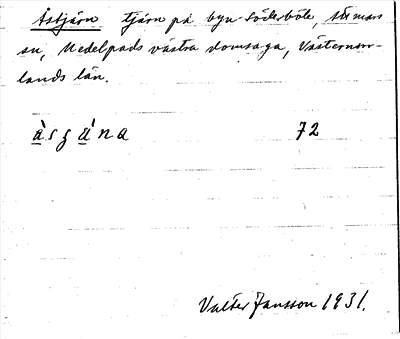 Åstjärn tjärn på byn Söderböle, Stöde
sn, Medelpads västra domsaga, Västernorr-
lands län.
àsgǻna 72
Valter Jansson 1931.